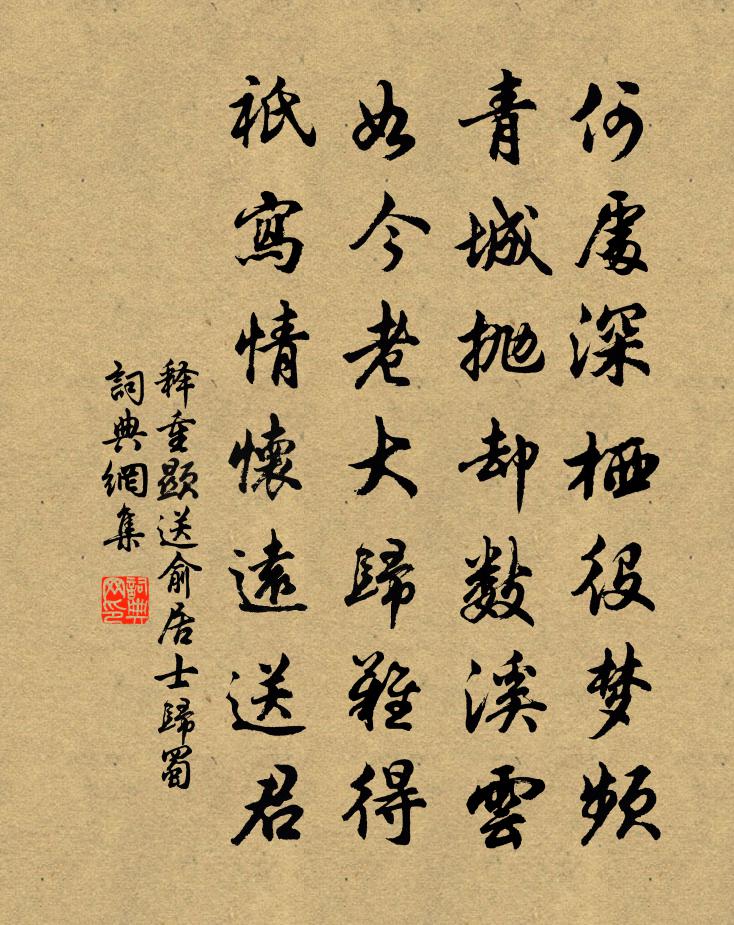 何處深栖役梦頻
青城抛却數溪雲
如今老大歸難得
祇寫情懷遠送君
释重顯送俞居士歸蜀
詞典網集
詞典网印